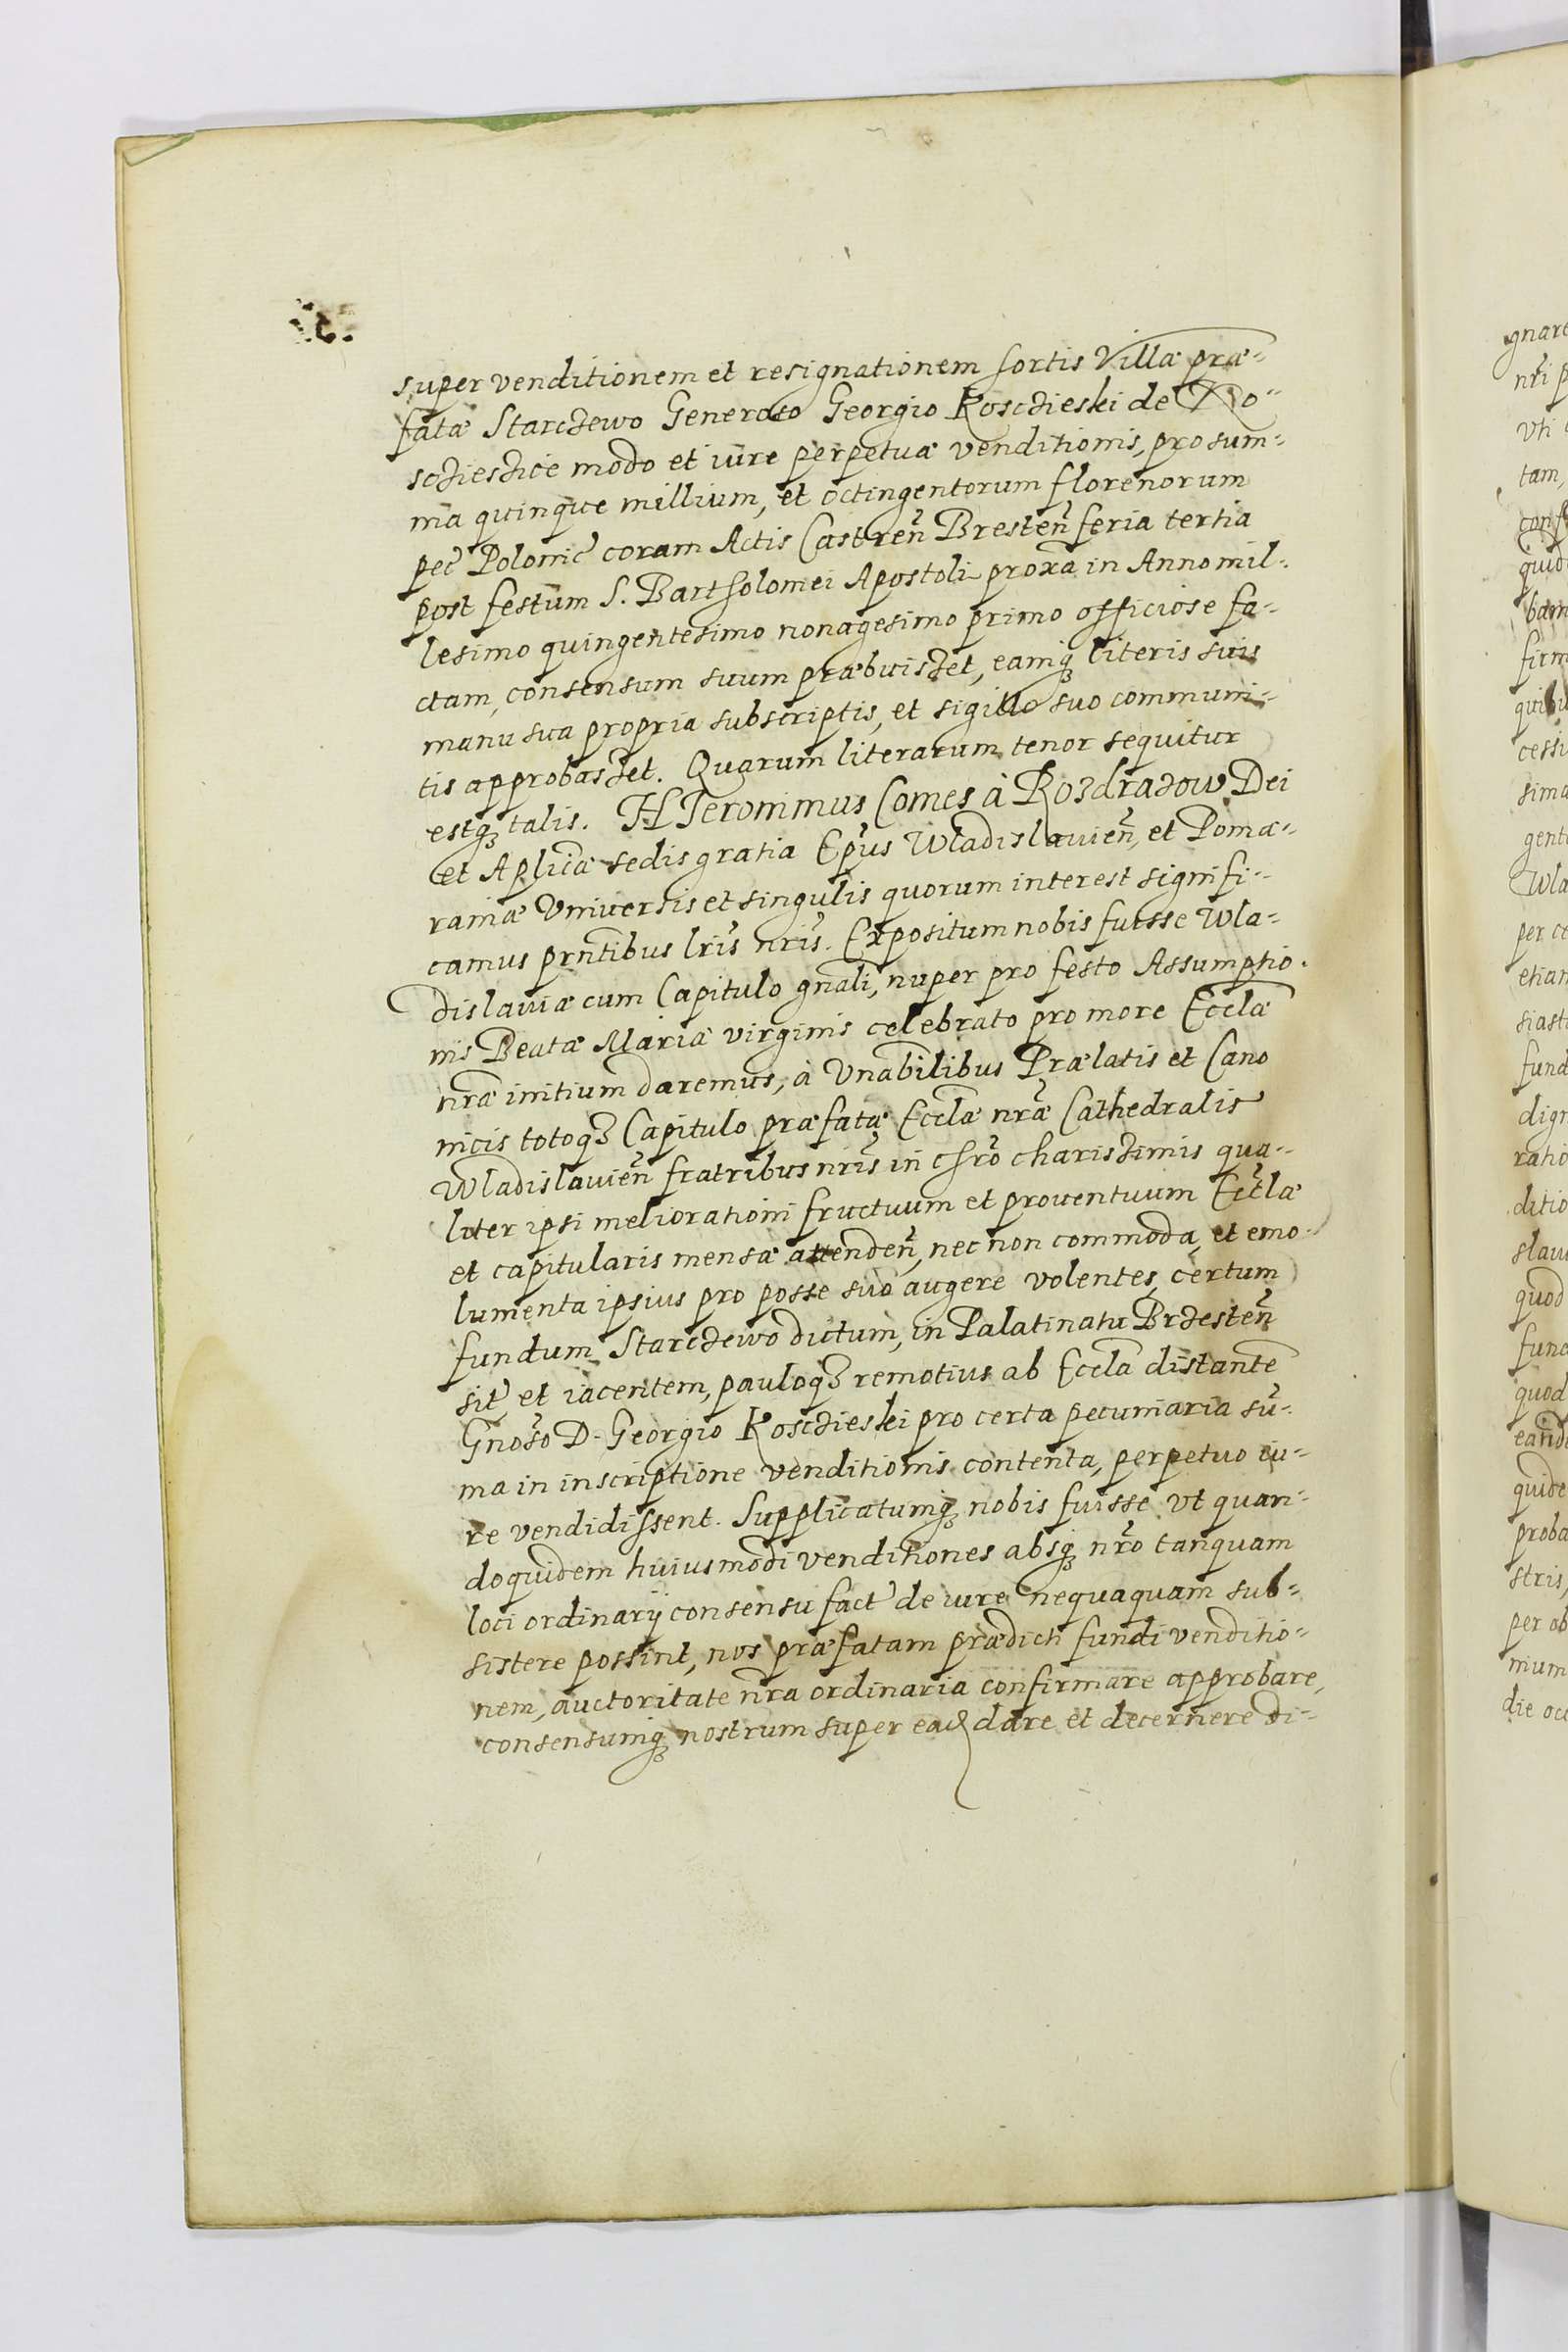 super venditionem et resignationem sortis Villæ præ-
fatæ Starczewo Generoso Georgio Kosczieski de Ko-
scziesticze modo et iure perpetuæ venditionis, pro sum-
ma quinque millium, et octingentorum florenorum
pec̃ Polonic̃ coram Actis Castren̄ Bresten̄ feria tertia
post festum S. Bartholomei Apostoli proxa in Anno mil-
lesimo quingentesimo nonagesimo primo officiose fa-
ctam, consensum suum præbuiszet, eamq₃ literis suis
manu sua propria subscriptis, et sigillo suo communi-
tis approbaszet. Quarum literarum tenor sequitur
estq₃ talis. HIeronimus Comes à Rozdrazow Dei
et Aplicæ sedis gratia Ep̃us Wladislauien̄, et Pome-
raniæ Vniuersis et singulis quorum interest signifi-
camus prn̄tibus lrĩs nrĩs. Expositum nobis fuisse Wla-
dislauiæ cum Capitulo gn̄ali, nuper pro festo Assumptio-
nis Beatæ Mariæ virginis celebrato pro more Eccl̄æ
nr̃æ initium daremus, à Vn̄abilibus Prælatis et Cano
nicis totoq₃ Capitulo præfatæ Eccl̄æ nr̃æ Cathedralis
Wladislauien̄ fratribus nrĩs in chr̃o chariszimis qua-
liter ipsi meliorationi fructuum et prouentuum Eccl̄æ
et capitularis mensæ attenden̄, nec non commoda, et emo-
lumenta ipsius pro posse suo augere volentes, certum
fundum Starczewo dictum, in Palatinatu Brzesten̄
sit̃ et iacentem, pauloq₃ remotius ab Eccl̄a distante
Gnoso D. Georgio Kosczieski pro certa pecuniaria sū-
ma in inscriptione venditionis contenta, perpetuo iu-
re vendidissent. Supplicatumq₃ nobis fuisse vt quan-
doquidem huiusmodi venditiones absq₃ nr̃o tanquam
loci ordinarij consensu fact̃ de iure nequaquam sub-
sistere possint, nos præfatam prædicti fundi venditio-
nem, auctoritate nr̃a ordinaria confirmare approbare,
consensumq₃ nostrum super eađ dare et decernere di-
gnare
nr̃i p
vti
tam,
conf
quid
bam
firm
quibu
cessi
sima
gent
Wla
per ce
etian
siast
fund
dign
ratio
ditio
slau
quod
fund
quod
eand
quide
proba
stris,
per ob
nium
die oc